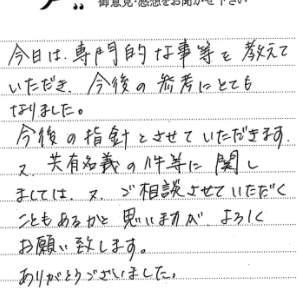 御意見・感想をお聞かせ下さい
今日は、専門的な事等を教えて
いただき、今後の参考にとても
なりました。
今後の指針とさせていただきます.
又、共有名義の件等に関し
ましては、又、ご相談させていただく
こともあるかと思いますが、よろしく
お願い致します。
ありがとうございました。